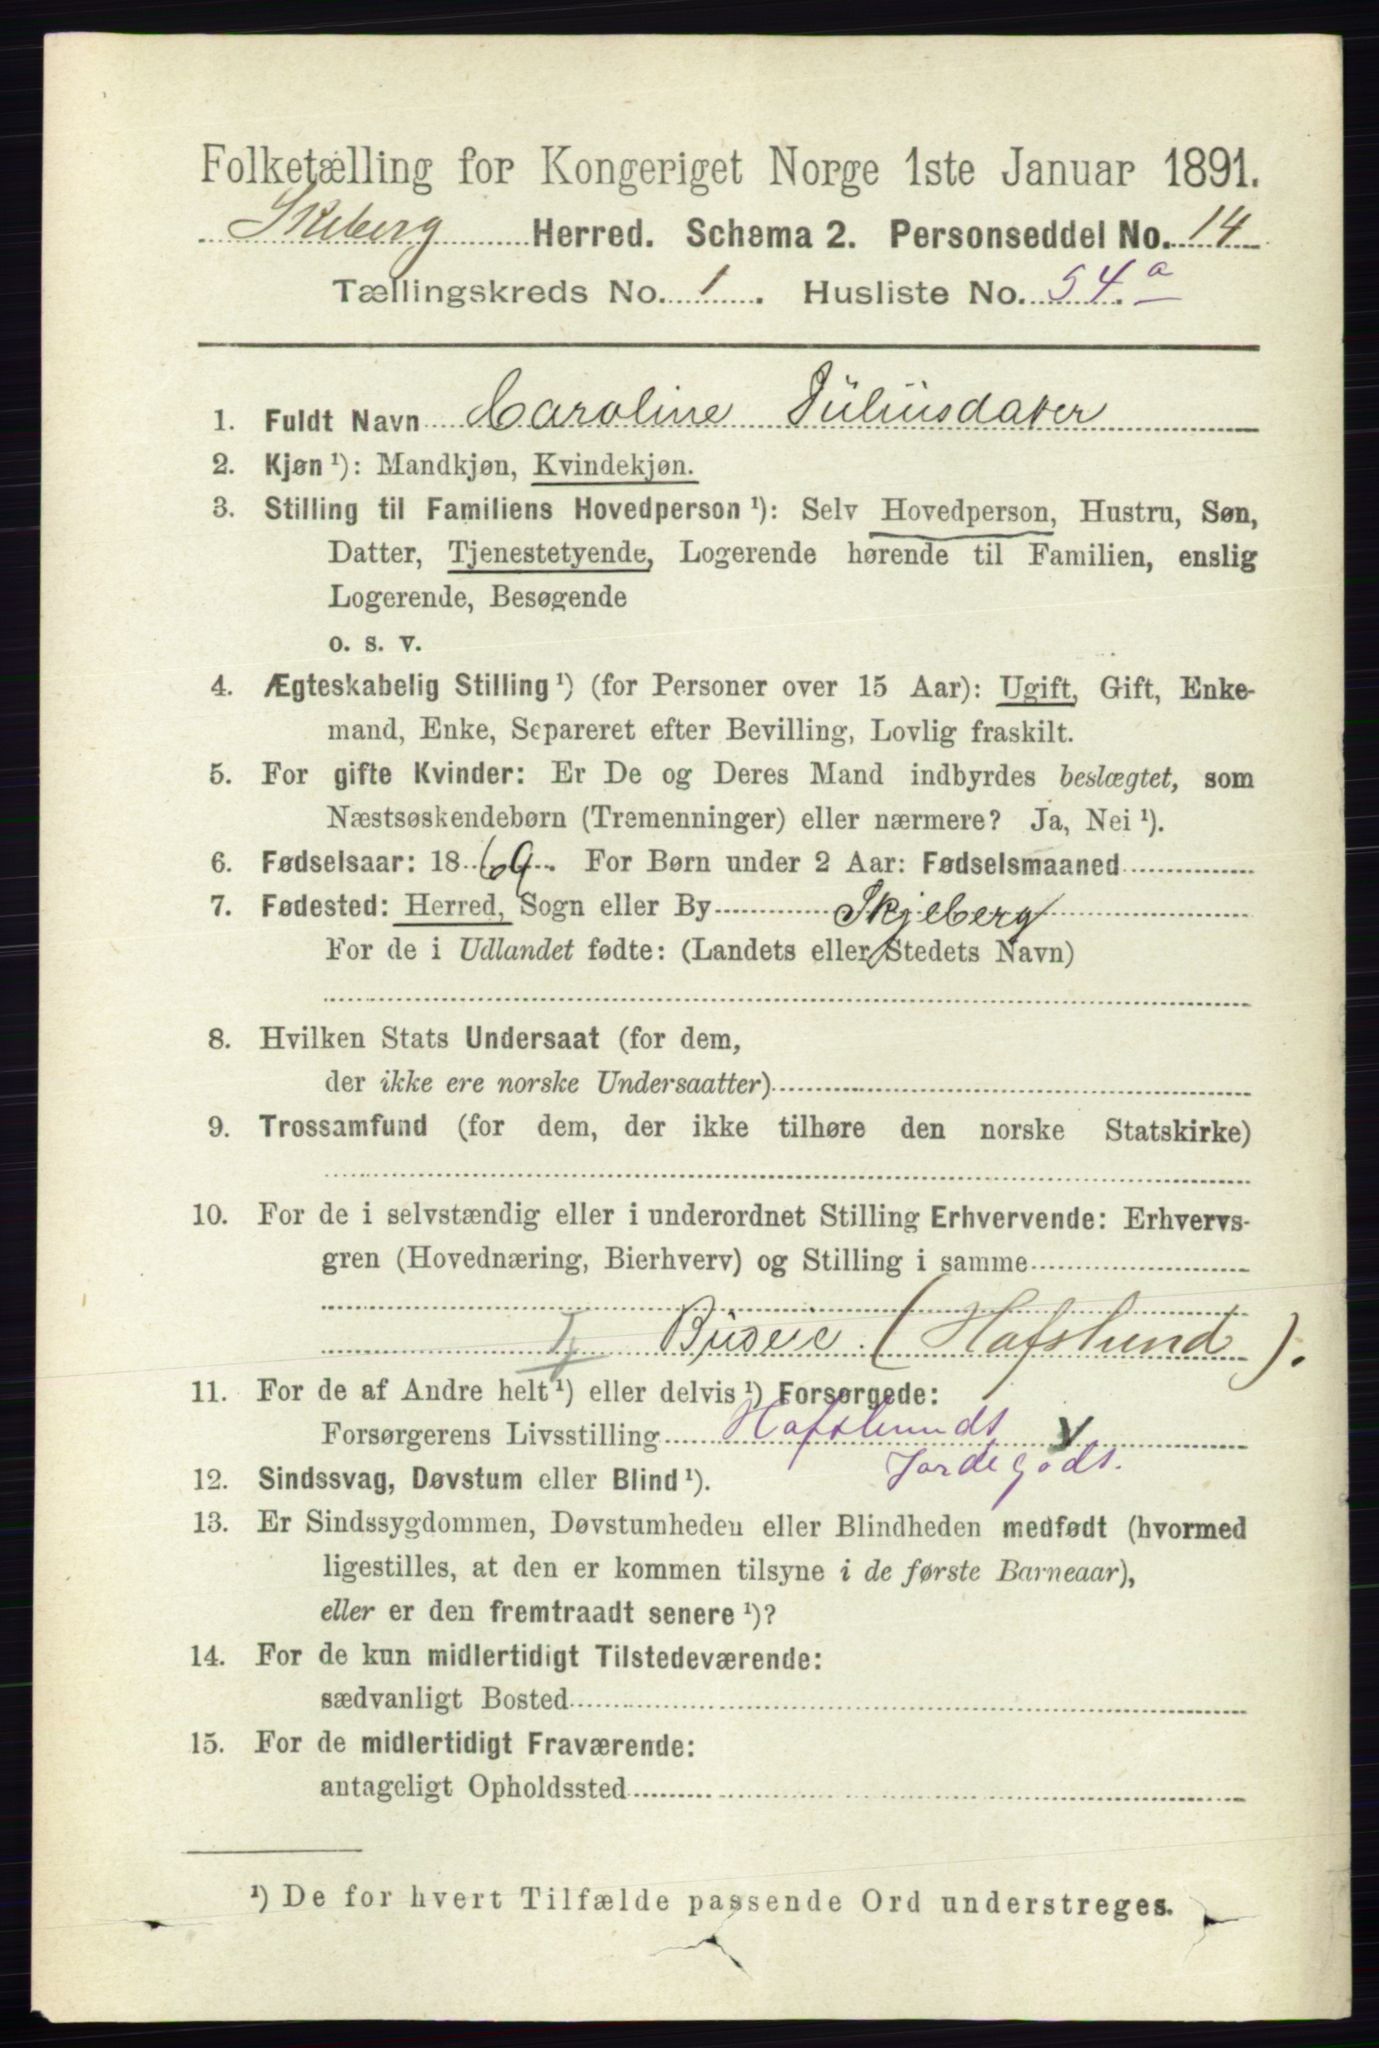 Folketælling for Kongeriget Norge 1ste Januar 1891.
Skeberg Herred. Schema 2. Personseddel No. 14
Tællingskreds No. 1. Husliste No. 54.a
1. Fuldt Navn Caroline Júliúsdater
2. Kjøn ¹): Mandkjøn, Kvindekjøn.
3. Stilling til Familiens Hovedperson ¹): Selv Hovedperson, Hustru, Søn,
Datter, Tjenestetyende, Logerende hørende til Familien, enslig
Logerende, Besøgende
o. s. v.
4. Ægteskabelig Stilling ¹) (for Personer over 15 Aar): Ugift, Gift, Enke-
mand, Enke, Separeret efter Bevilling, Lovlig fraskilt.
5. For gifte Kvinder: Er De og Deres Mand indbyrdes beslægtet, som
Næstsøskendebørn (Tremenninger) eller nærmere? Ja, Nei ¹).
6. Fødselsaar: 1869. For Børn under 2 Aar: Fødselsmaaned
7. Fødested: Herred, Sogn eller By Skjeberg
For de i Udlandet fødte: (Landets eller Stedets Navn)
8. Hvilken Stats Undersaat (for dem,
der ikke ere norske Undersaatter)
9. Trossamfund (for dem, der ikke tilhøre den norske Statskirke)
10. For de i selvstændig eller i underordnet Stilling Erhvervende: Erhvervs-
gren (Hovednæring, Bierhverv) og Stilling i samme
Budeie (Hafslund).
11. For de af Andre helt ¹) eller delvis ¹) Forsørgede:
Forsørgerens Livsstilling Hafslunds
Jordegods.
12. Sindssvag, Døvstum eller Blind ¹).
13. Er Sindssygdommen, Døvstumheden eller Blindheden medfødt (hvormed
ligestilles, at den er kommen tilsyne i de første Barneaar),
eller er den fremtraadt senere ¹)?
14. For de kun midlertidigt Tilstedeværende:
sædvanligt Bosted
15. For de midlertidigt Fraværende:
antageligt Opholdssted
¹) De for hvert Tilfælde passende Ord understreges.